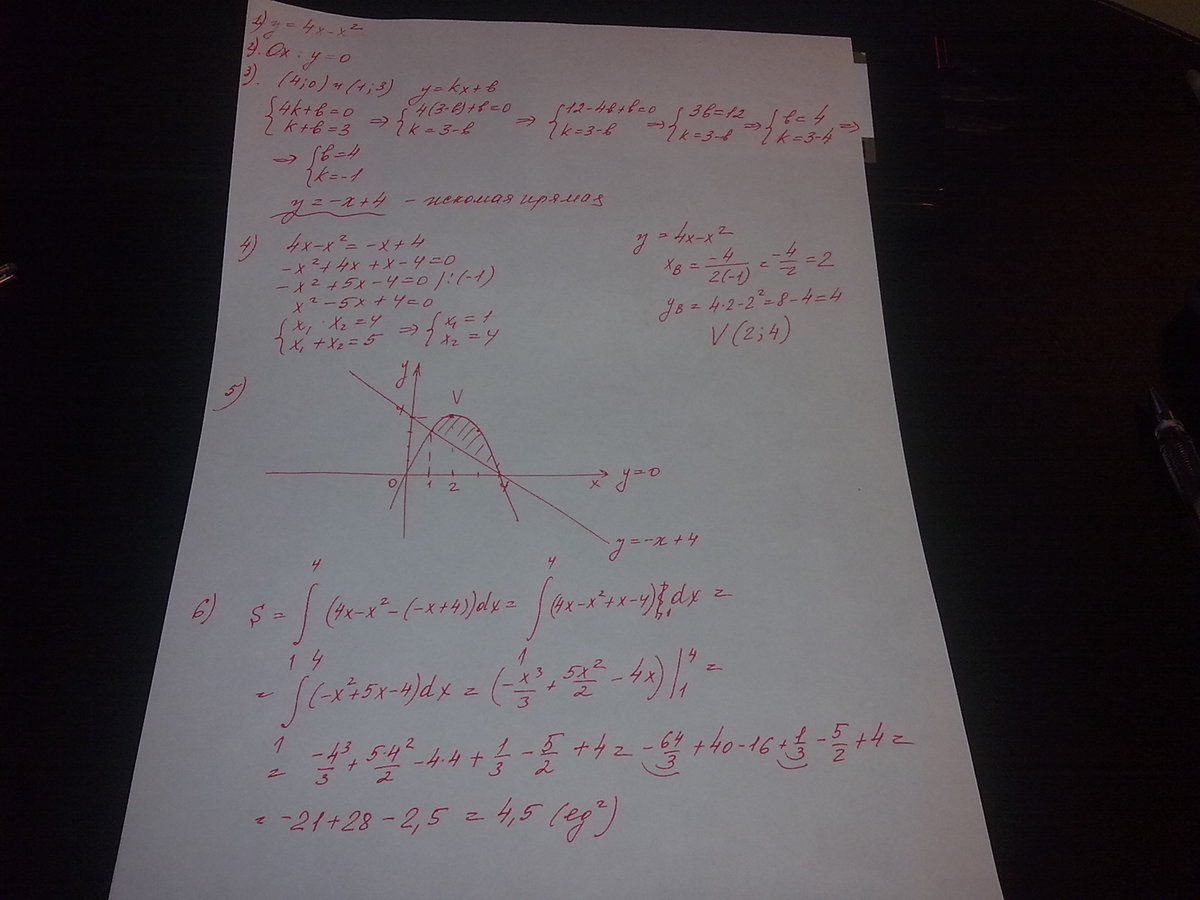 1) y = 4x-x²
2). Ox: y=0
3). (4;0) и (1;3) y=kx+b
{4k+b=0 k+b=3 => {4(3-b)+b=0 k=3-b => {12-4b+b=0 k=3-b => {3b=12 k=3-b => {b=4 k=3-4 =>
=> {b=4 k=-1
y=-x+4 - искомая прямая
4) 4x-x²=-x+4
-x²+4x+x-4=0
-x²+5x-4=0 /:(-1)
x²-5x+4=0
{x₁·x₂=4 x₁+x₂=5 => {x₁=1 x₂=4
y=4x-x²
xв = -4/2(-1) = -4/2 = 2
yв = 4·2-2²=8-4=4
V(2;4)
5)
y
4
V
0 1 2 4 x y=0
y=-x+4
6) S = ∫₁⁴ (4x-x²-(-x+4))dx = ∫₁⁴ (4x-x²+x-4) dx =
= ∫₁⁴ (-x²+5x-4)dx = (-x³/3 + 5x²/2 - 4x)|₁⁴ =
= -4³/3 + 5·4²/2 - 4·4 + 1/3 - 5/2 + 4 = -64/3 + 40-16 + 1/3 - 5/2 + 4 =
= -21+28-2,5 = 4,5 (eg²)